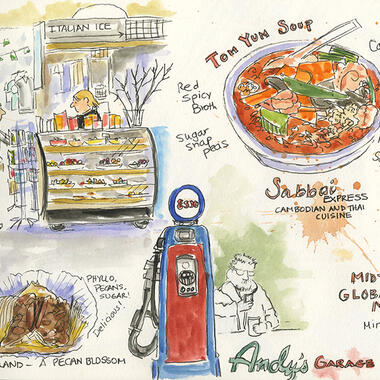 ITALIAN ICE
TOM YUM SOUP
Red
Spicy
Broth
Sugar
snap
peas
Sabbai
EXPRESS
CAMBODIAN AND THAI
CUISINE
PHYLLO,
PECANS,
SUGAR!
Delicious!
A PECAN BLOSSOM
MIDT
GLOBA
M
Min
Andy's GARAGE